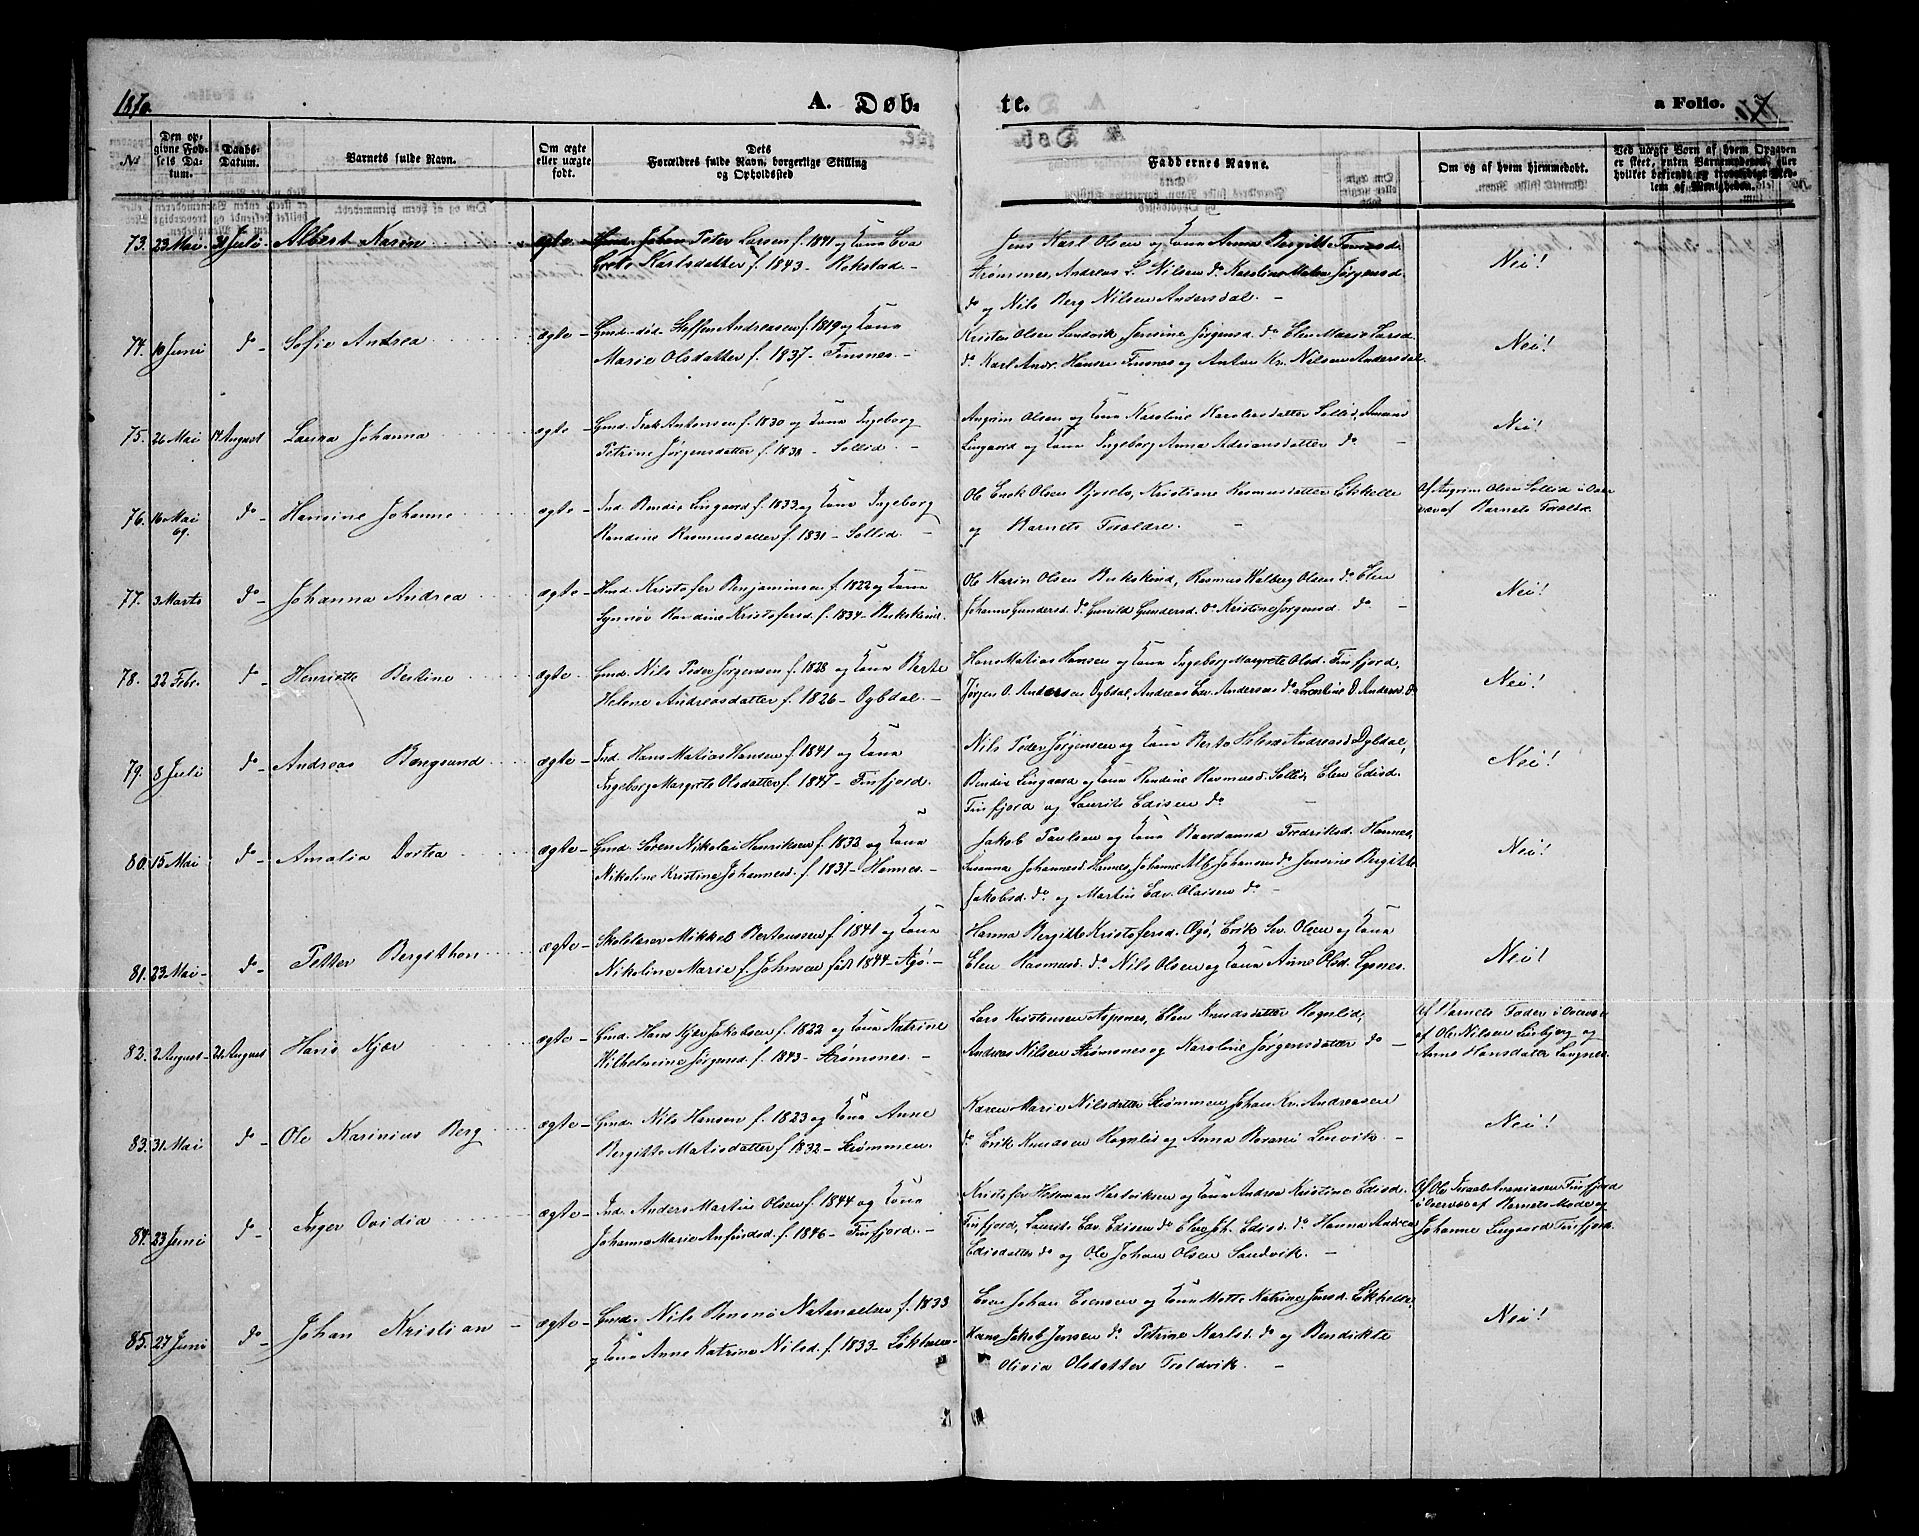 1870.
A. Døb-
te.
a Folio.
No
Den op-
givne Fød-
sels Da-
tum.
Daabs-
Datum.
Barnets fulde Navn.
Om ægte
eller uægte
født.
Dets
Forældres fulde Navn, borgerlige Stilling
og Opholdssted
Faddernes Navne.
Om og af hvem hjemmedøbt.
Ved uægte Børn af hvem Opgaven
er skeet, enten Barnemoderen, eller
hvilket bekjendt og troværdigt Med-
lem af Menigheden.
73. 23 Mai 31 Juli Albert Karin ægte Gmd. Johan Peter Larsen f. 1841 og Kona Eva
Grete Karlsdatter f. 1843 - Rokstad -
Jens Karl Olsen og Kona Anna Bergitte
Strømsnes, Andreas L. Nilsen do Karoline Jørgensd.
do og Nils Berg Nilsen Andersdal. -
Nei!
74. 10 Juni do - Sofie Andrea ægte - Gmd. død. Steffen Andreasen f. 1819 og Kona
Marie Olsdatter f. 1837 - Finsnes -
Kristen Olsen Sandvik, Jensine Jørgensd. do Elen Marie Larsd.
do Karl Andr. Hansen Finsnes og Anton Kr. Nilsen Andersdal.
Nei!
75. 26 Mai 14 August Laura Johanna ægte - Gmd. Isak Antonsen f. 1830 og Kona Ingeborg
Petrine Jørgensdatter f. 1838 - Sollid. -
Angrim Olsen og Kona Karoline Sollid,
Lingaard og Kona Ingeborg Anna Adriansdatter do -
Nei!
76. 16 Mai 69. do - Hansine Johanne ægte - Ind. Bendix Lingaard f. 1833 og Kona Ingeborg
Rendine Rasmusdatter f. 1831 - Sollid. -
Ole Enok Olsen Kristiane Rasmusdatter
og Barnets Forældre. -
Af Angrim Olsen Sollid i Over
vær af Barnets Foreldre.
77. 3 Marts do - Johanna Andrea ægte - Gmd. Kristofer Benjaminsen f. 1822 og Kona
Synnøv Rendine Kristofersd. f. 1834 -
Ole Karin Olsen Rasmus Walberg Olsen do Elen
Johanne Gundersd. do Gunild Gundersd. do Kristine Jørgensd. do -
Nei!
78. 22 Febr. do - Henriette Berkine ægte. Gmd. Nils Peder Jørgensen f. 1828 og Kona Berte
Helene Andreasdatter f. 1826 - Oybdal. -
Hans Matias Hansen og Kona Ingeborg Margrete Olsd. Finfjord,
Jørgen O. Andersen Andreas Ed. Andersen do
Nei!
79. 8 Juli do - Andreas Bangsund ægte - Ind. Hans Matias Hansen f. 1841 og Kona
Ingeborg Margrete Olsdatter f. 1847 - Finfjord.
Nils Peder Jørgensen og Kona Berte Helene Andreasd.
Bendix Lingaard og Kona Rendine Rasmusd. Sollid, Elen Edisd.
Finfjord og Laurits Edisen do -
Nei!
80. 15 Mai do - Amalia Dortea ægte - Gmd. Søren Nikolai Henriksen f. 1833 og Kona
Nikoline Kristine Johannesd. f. 1837 - Hannes. -
Jakob Paulsen og Kona Fredriksd. Hannes,
Susanna Johannesd. Hannes, Johanne Alb. Johansen do Jensine Bergitte
Jakobsd. do og Martin Edv. Olaisen do -
Nei!
81. 23 Mai - do - Petter Bergithon ægte - Skolelærer Mikkel Berteussen f. 1841 og Kona
Nikoline Marie f. Johnsen født 1844 - Agö. -
Hanna Bergitte Kristofersd. Erik Olsen og Kona
Elen Rasmusd. do Nils Olsen og Kona Anne Olsd. Lysnes.
Nei!
82. 2 August - 21 August Hans Kjær ægte - Gmd. Hans Kjær Jakobsen f. 1822 og Kona Katrine
Wilhelmine Jørgensd f. 1843 - Strømsnes. -
Lars Kristensen Aspenes, Elen Knudsdatter Hognlid,
Andreas Nilsen Strømsnes og Karoline Jørgensdatter do -
Af Barnets Fader i Overvær
af Ole Nilsen og
Anne Hansdatter
83. 31 Mai do - Ole Karinius Berg ægte - Gmd. Nils Hansen f. 1823 og Kona Anne
Bergitte Matisdatter f. 1832 - Strømmen.
Karen Marie Nilsdatter Strømmen, Johan Kr. Andreasen
do Erik Knudsen Hognlid og Anna Lenvik -
Nei!
84. 23 Juni do - Inger Ovidia ægte - Ind. Anders Martin Olsen f. 1844 og Kona
Johanna Marie Anfindsd. f. 1846 - Finfjord. -
Kristofer Herman Hartviksen og Kona Andrea Kristine Edisd.
Finfjord, Laurits Edv. Edisen do Elen Edisd. do Hanna Andrea
Edisdatter do og Ole Johan Olsen Sandvik. -
Af Ole Israel Ananiassen Finfjord
i Overvær af Barnets Moder og
Johanne Lingaard Finfjord.
85. 27 Juni do - Johan Kristian - ægte - Gmd. Nils Benonø Natanaelsen f. 1833
og Kona Anne Katrina Nilsd. f. 1833 -
Even Johan Evensen og Kona Mette Katrine Jensd.
Hans Jakob Jensen do Petrine Karlsd. do og Bendikte
Olivia Olsdatter Troldvik. -
Nei!